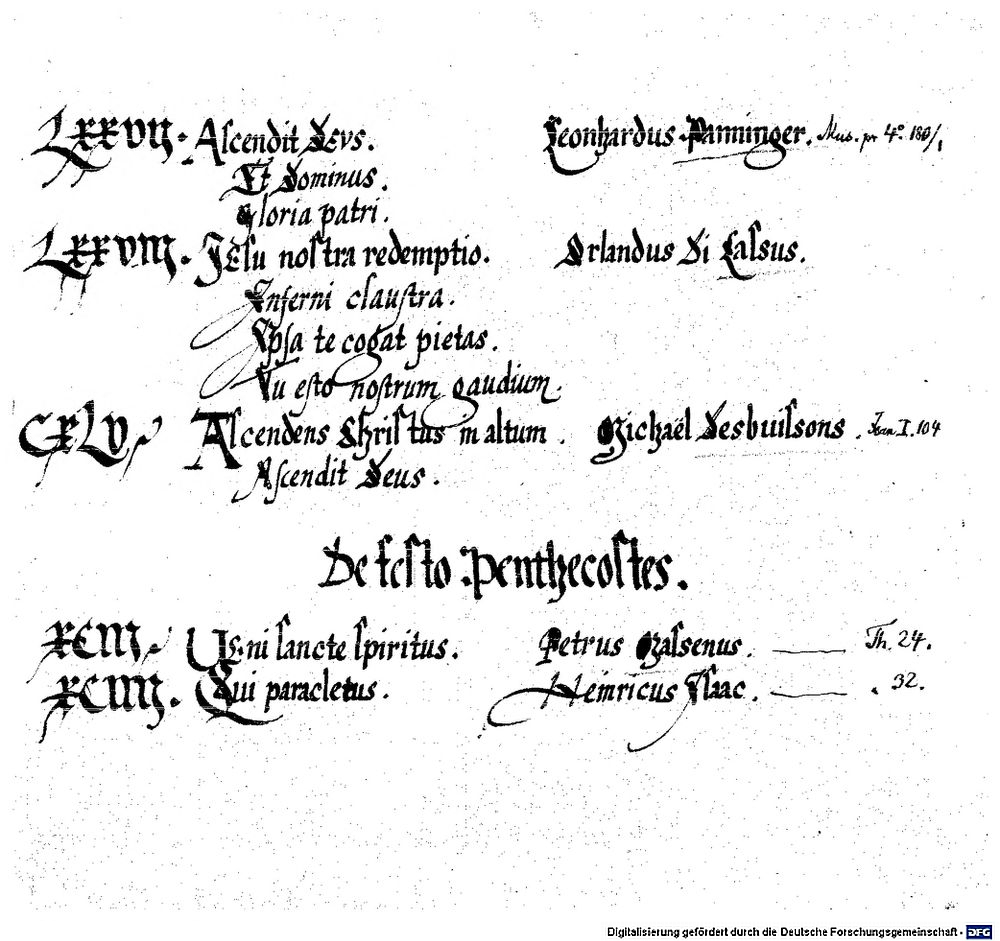 LXXVII. Ascendit Deus. Leonhardus Paminger. Mus. pr. 4° 180/1
Et Dominus.
Gloria patri.
LXXVIII. JEsu nostra redemptio. Orlandus Di Lassus.
Inferni claustra.
Ipsa te cogat pietas.
Tu esto nostrum gaudium.
CXLV. Ascendens Christus in altum. Michaël Desbuissons. I. 104
Ascendit Deus.
De festo Penthecostes.
XCIII. Veni sancte spiritus. Petrus Massenus. Th. 24.
XCIIII. Qui paracletus. Heinricus Isaac. 32.
Digitalisierung gefördert durch die Deutsche Forschungsgemeinschaft - DFG